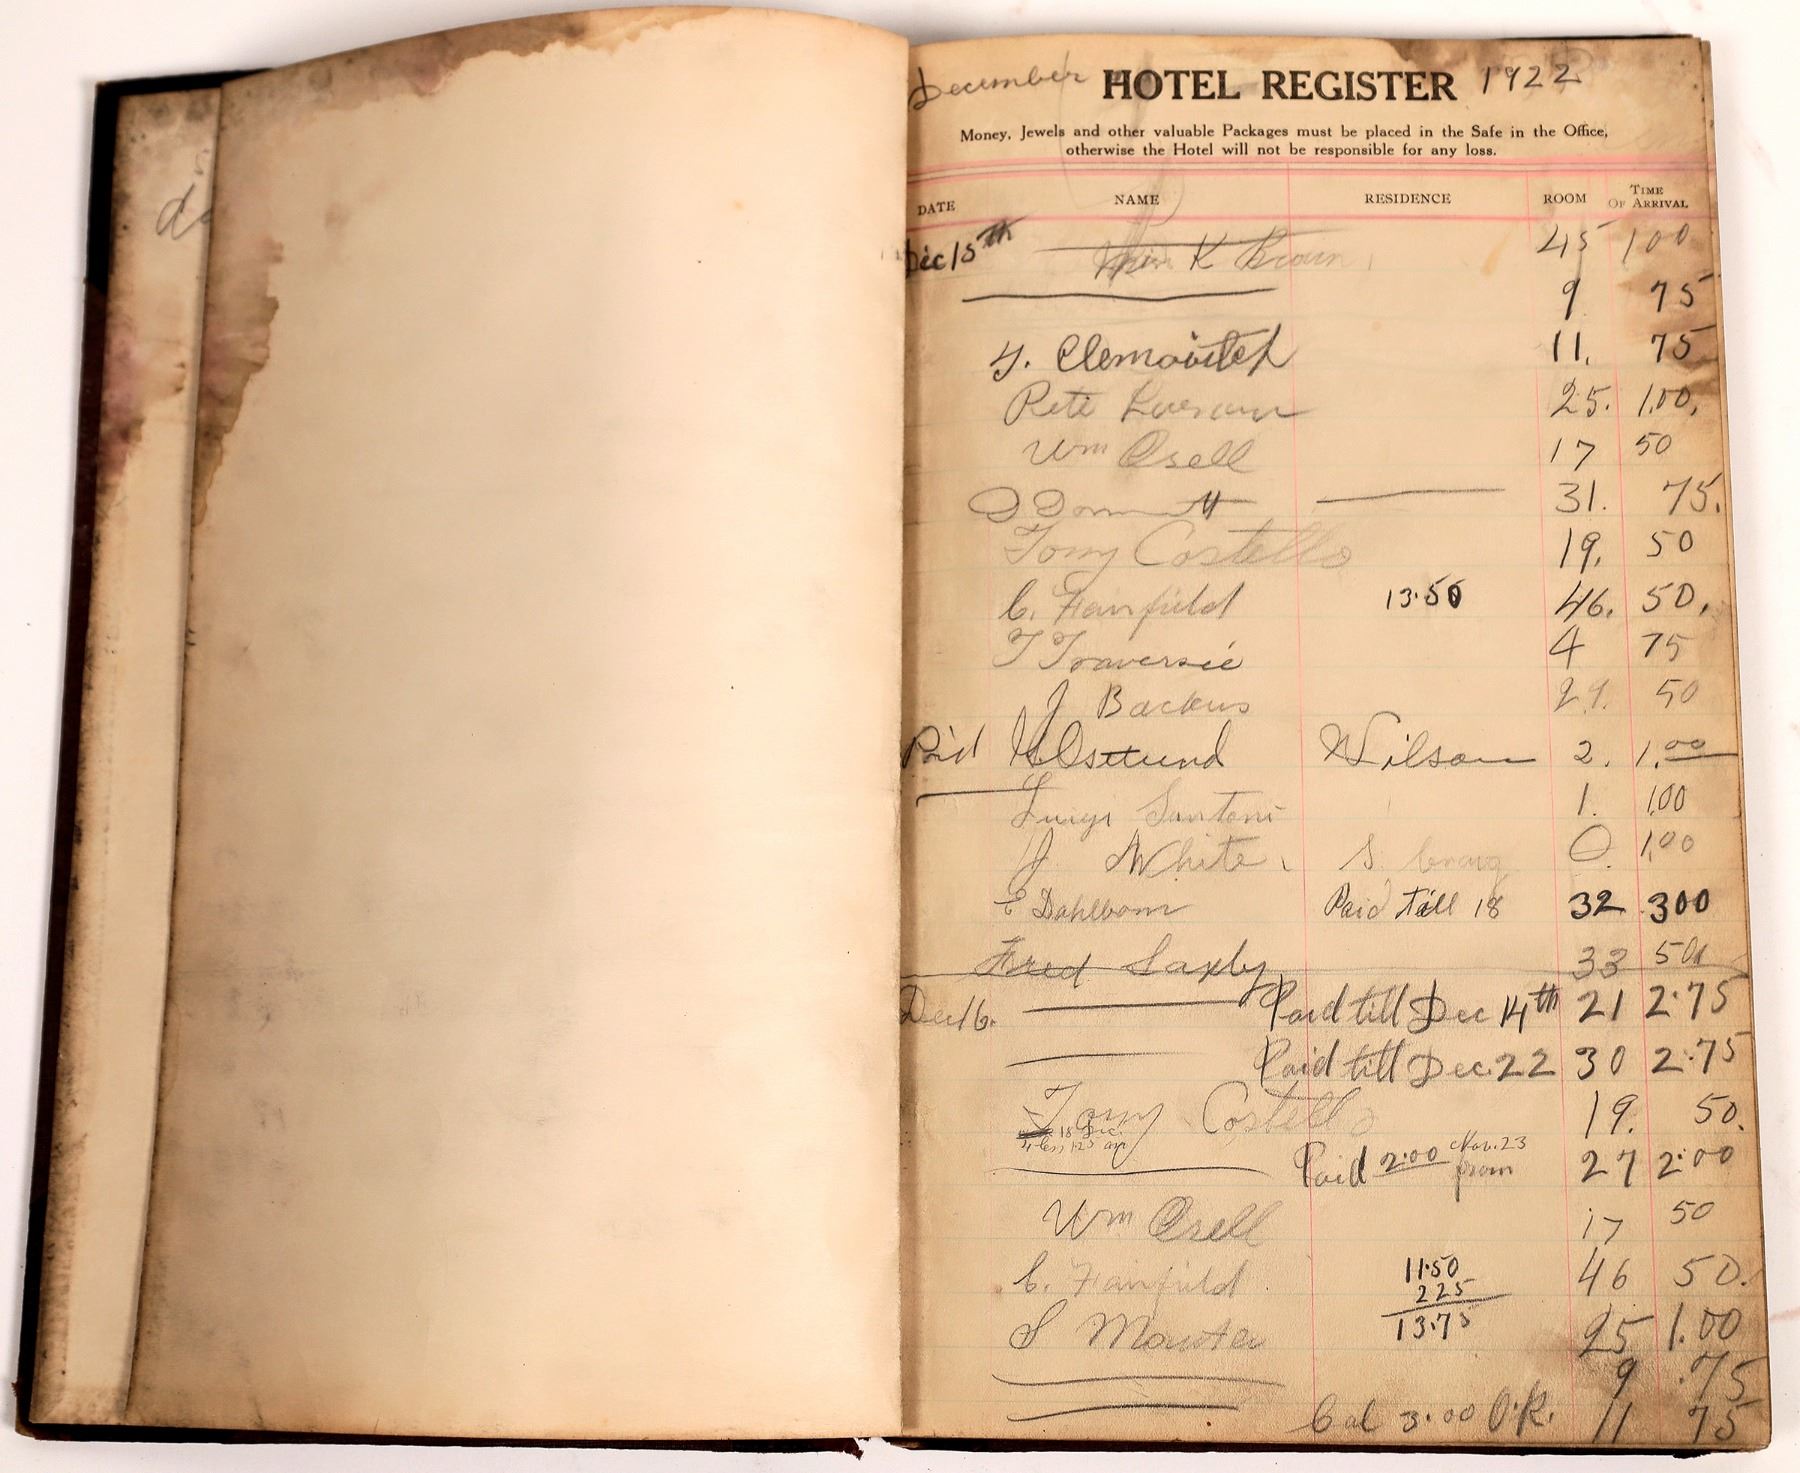 December HOTEL REGISTER 1922
Money, Jewels and other valuable Packages must be placed in the Safe in the Office,
otherwise the Hotel will not be responsible for any loss.
DATE NAME RESIDENCE ROOM TIME OF ARRIVAL
Dec 15th K Brown 45 100
9 75
Y. Clemovitch 11. 75
Pete 25. 1.00.
Wm Orell 17 50
D 31. 75.
Tony Costello 19. 50
C. Fairfield 13.50 46. 50.
T Traversie 4 75
J Backus 29. 50
Paid Ostlund Wilson 2. 1.00
Luigi Santoni 1. 1.00
J White. S. Craig 0. 1.00
E Dahlbom Paid till 18 32 300
Fred Saxby 33 50
Dec 16. Paid till Dec 14th 21 2.75
Paid till Dec. 22 30 2.75
Tony Costello 19. 50.
18 Dec.
Paid 2.00 from Nov. 23 27 2.00
Wm Orell 17 50
C. Fairfield 11.50 46 50.
225
13.75
S 25 1.00
9 .75
Cal 3.00 O.K. 11 75